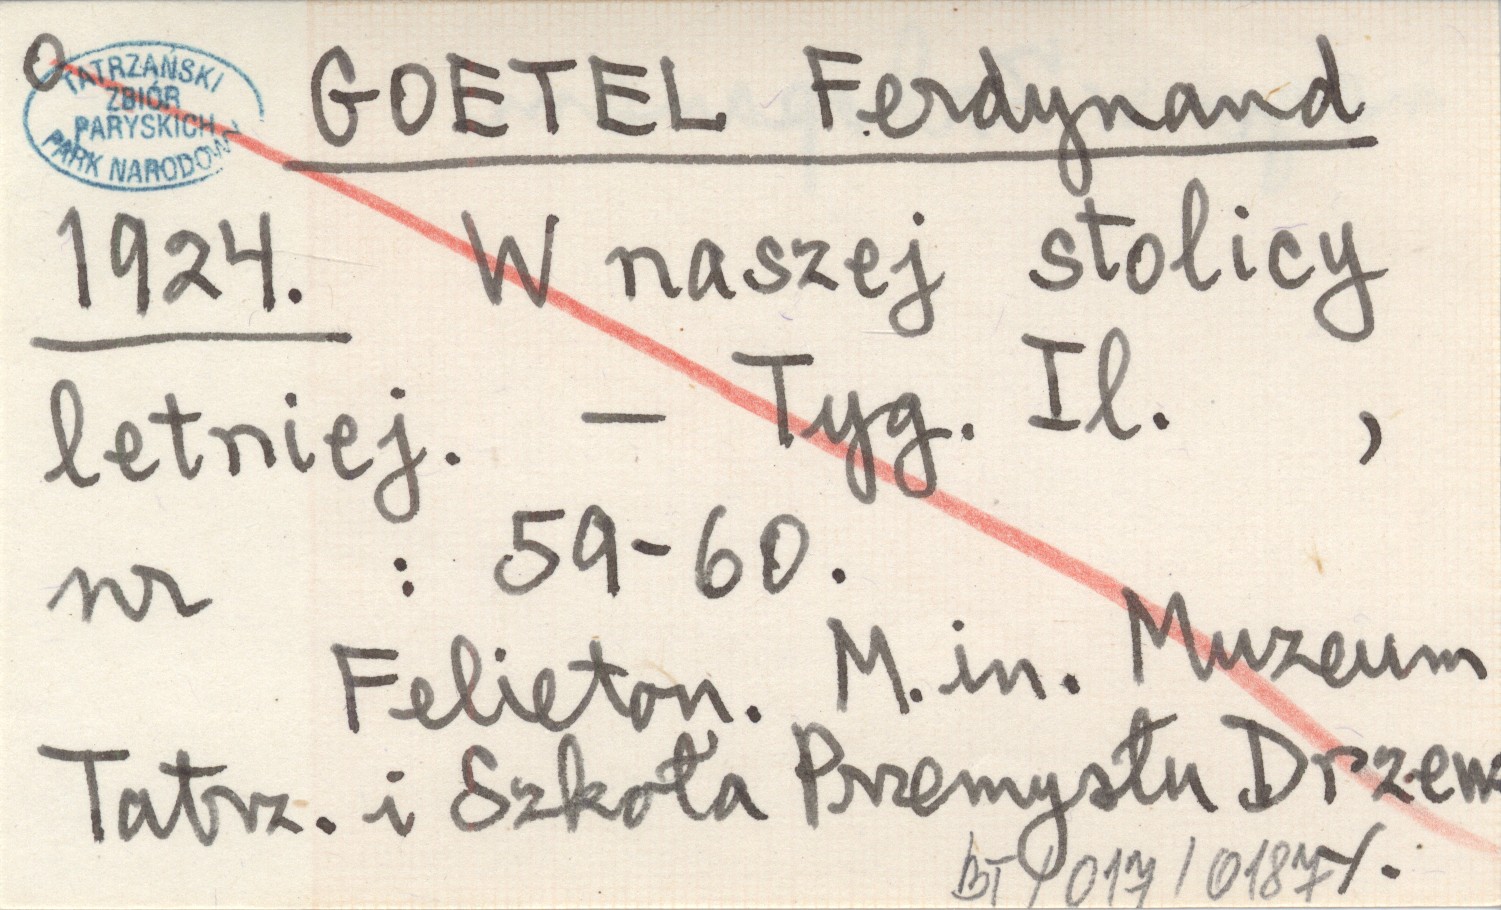 O
TATRZAŃSKI
ZBIÓR
PARYSKICH
PARK NARODOW
GOETEL Ferdynand
1924. W naszej stolicy
letniej. — Tyg. Il. ,
nr : 59-60.
Felieton. M.in. Muzeum
Tatrz. i Szkoła Przemysłu Drzewn
BT / 017 / 0187